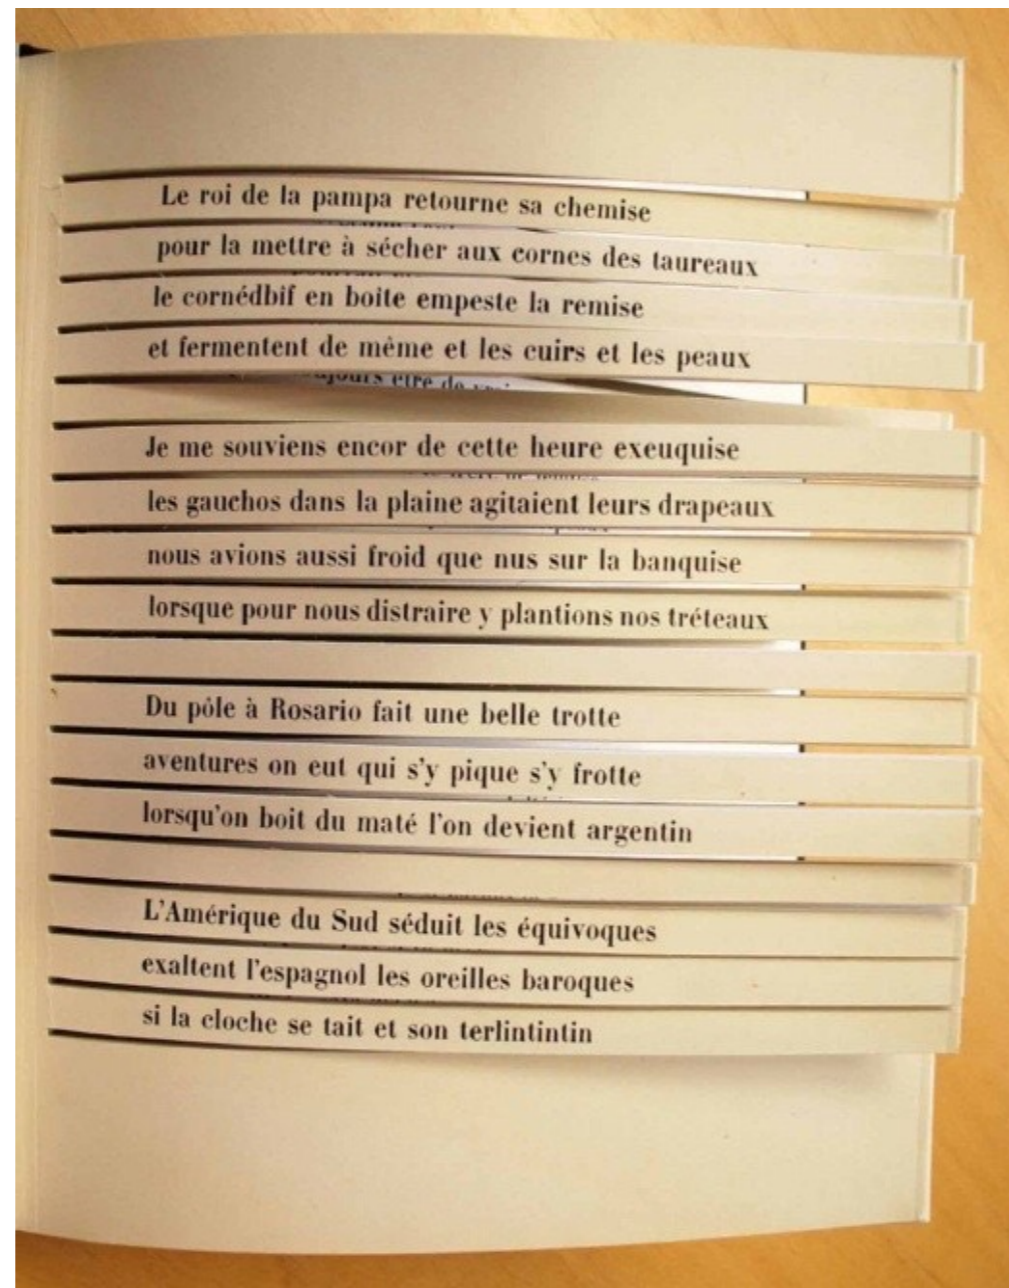 Le roi de la pampa retourne sa chemise
pour la mettre à sécher aux cornes des taureaux
le cornédbif en boîte empeste la remise
et fermentent de même et les cuirs et les peaux
Je me souviens encor de cette heure exeuquise
les gauchos dans la plaine agitaient leurs drapeaux
nous avions aussi froid que nus sur la banquise
lorsque pour nous distraire y plantions nos tréteaux
Du pôle à Rosario fait une belle trotte
aventures on eut qui s'y pique s'y frotte
lorsqu'on boit du maté l'on devient argentin
L'Amérique du Sud séduit les équivoques
exaltent l'espagnol les oreilles baroques
si la cloche se tait et son terlintintin